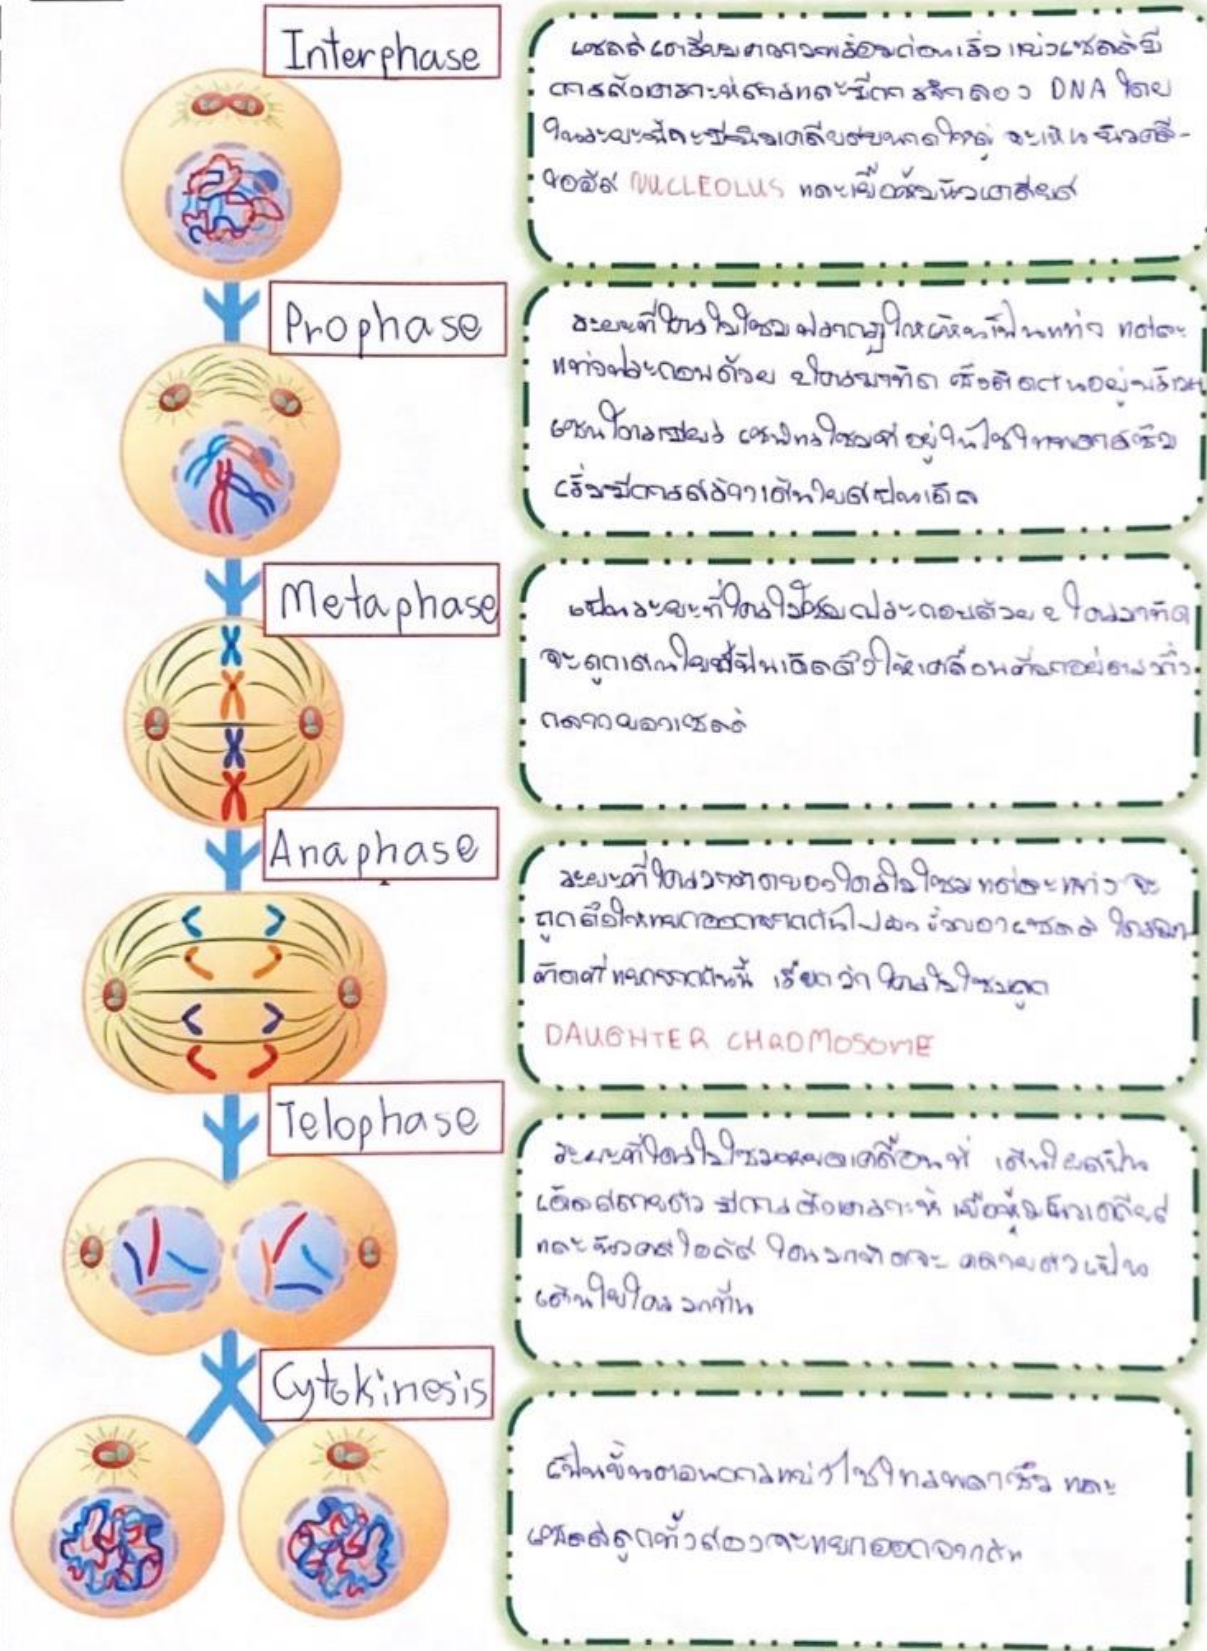 Interphase
เซลล์เตรียมความพร้อมก่อนเริ่มแบ่งเซลล์มี
การสังเคราะห์สารและมีการจำลอง DNA โดย
ในระยะนี้จะมีนิวเคลียสขนาดใหญ่ จะเห็นนิวคลี-
โอลัส NUCLEOLUS และเยื่อหุ้มนิวเคลียส
Prophase
ระยะที่โครโมโซมปรากฏให้เห็นเป็นแท่ง แต่ละ
แท่งประกอบด้วย 2 โครมาทิด ซึ่งติดกันอยู่บริเวณ
เซนโทรเมียร์ เซนโทรโซมที่อยู่ในไซโทพลาสซึม
เริ่มมีการสร้างเส้นใยสปินเดิล
Metaphase
เป็นระยะที่โครโมโซมประกอบด้วย 2 โครมาทิด
จะถูกเส้นใยสปินเดิลดึงให้เคลื่อนที่มาอยู่ตรง
กลางของเซลล์
Anaphase
ระยะที่โครมาทิดของโครโมโซมแต่ละแท่ง จะ
ถูกดึงให้แยกออกจากกันไปสองขั้วของเซลล์ โครมา
ทิดที่แยกจากกันนี้ เรียกว่า โครโมโซมลูก
DAUGHTER CHROMOSOME
Telophase
ระยะที่โครโมโซมหยุดเคลื่อนที่ เส้นใยสปิน
เดิลสลายตัว มีการสังเคราะห์ เยื่อหุ้มนิวเคลียส
และนิวคลีโอลัส โครมาทิดจะ คลายตัวเป็น
เส้นใยโครมาทิน
Cytokinesis
เป็นขั้นตอนการแบ่งไซโทพลาซึม และ
เซลล์ลูกทั้งสองจะแยกออกจากกัน